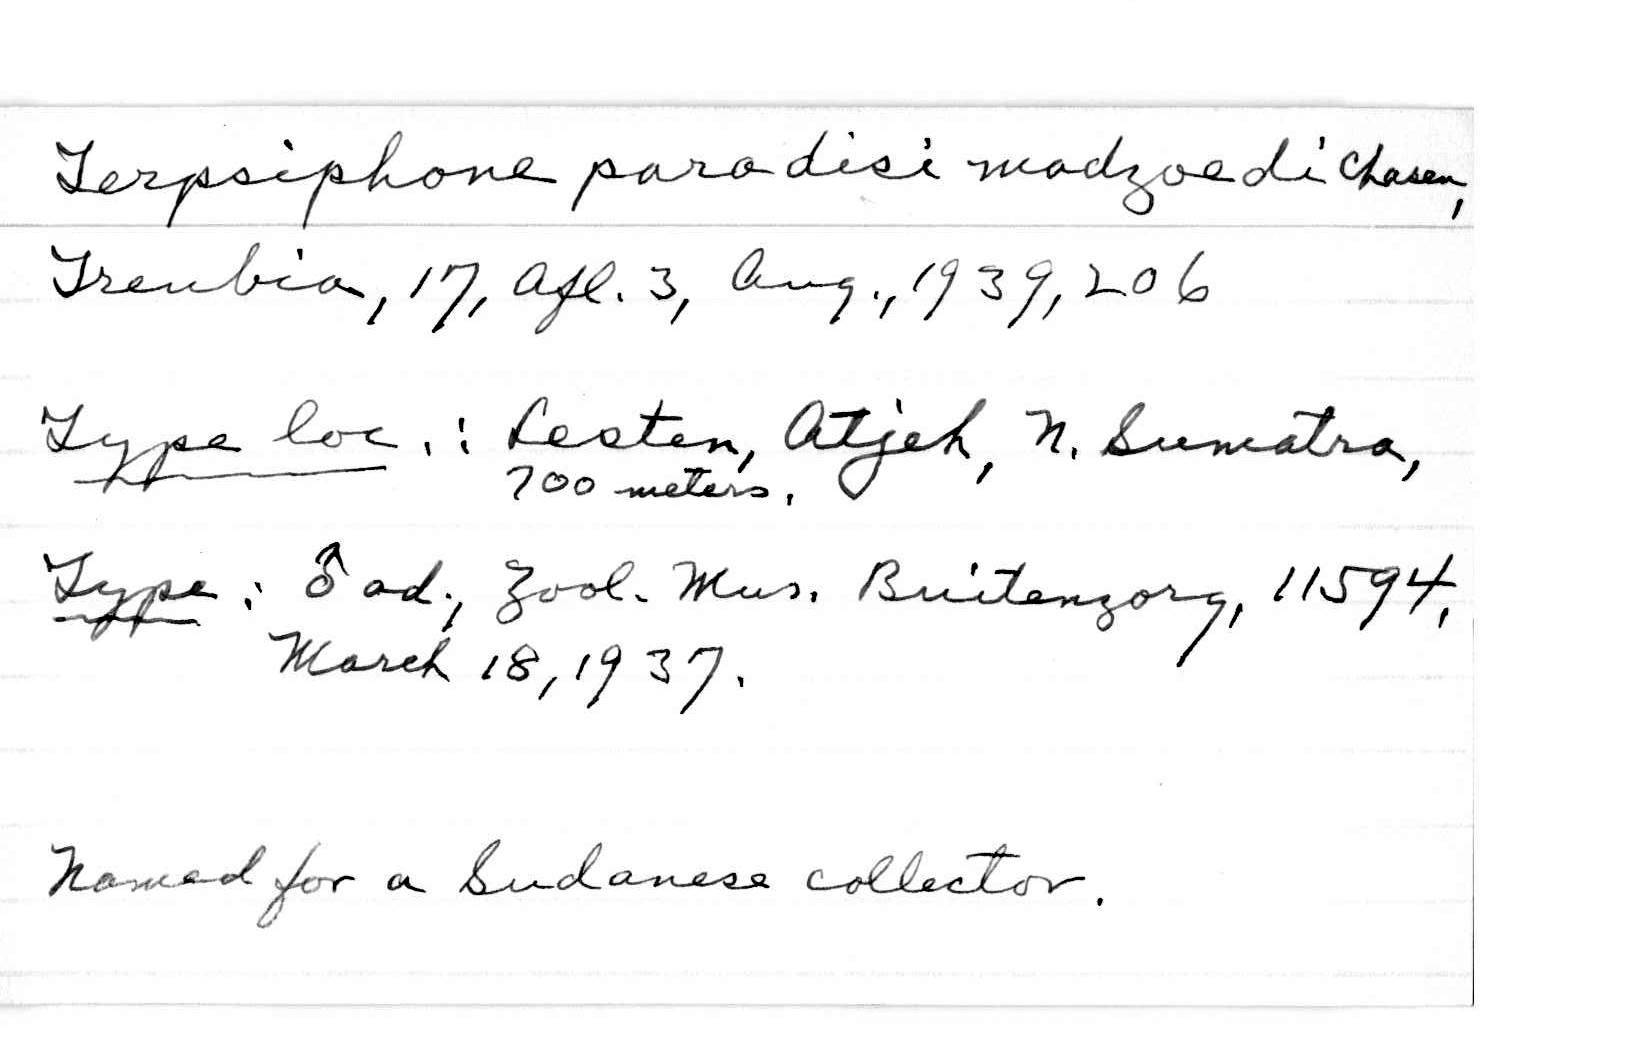 Terpsiphone paradisi madzoedi Chasen,
Treubia, 17, Afl. 3, Aug., 1939, 206
Type loc.: Lesten, Atjeh, N. Sumatra,
700 meters.
Type: ♂ ad., Zool. Mus. Buitenzorg, 11594,
March 18, 1937.
Named for a Sudanese collector.